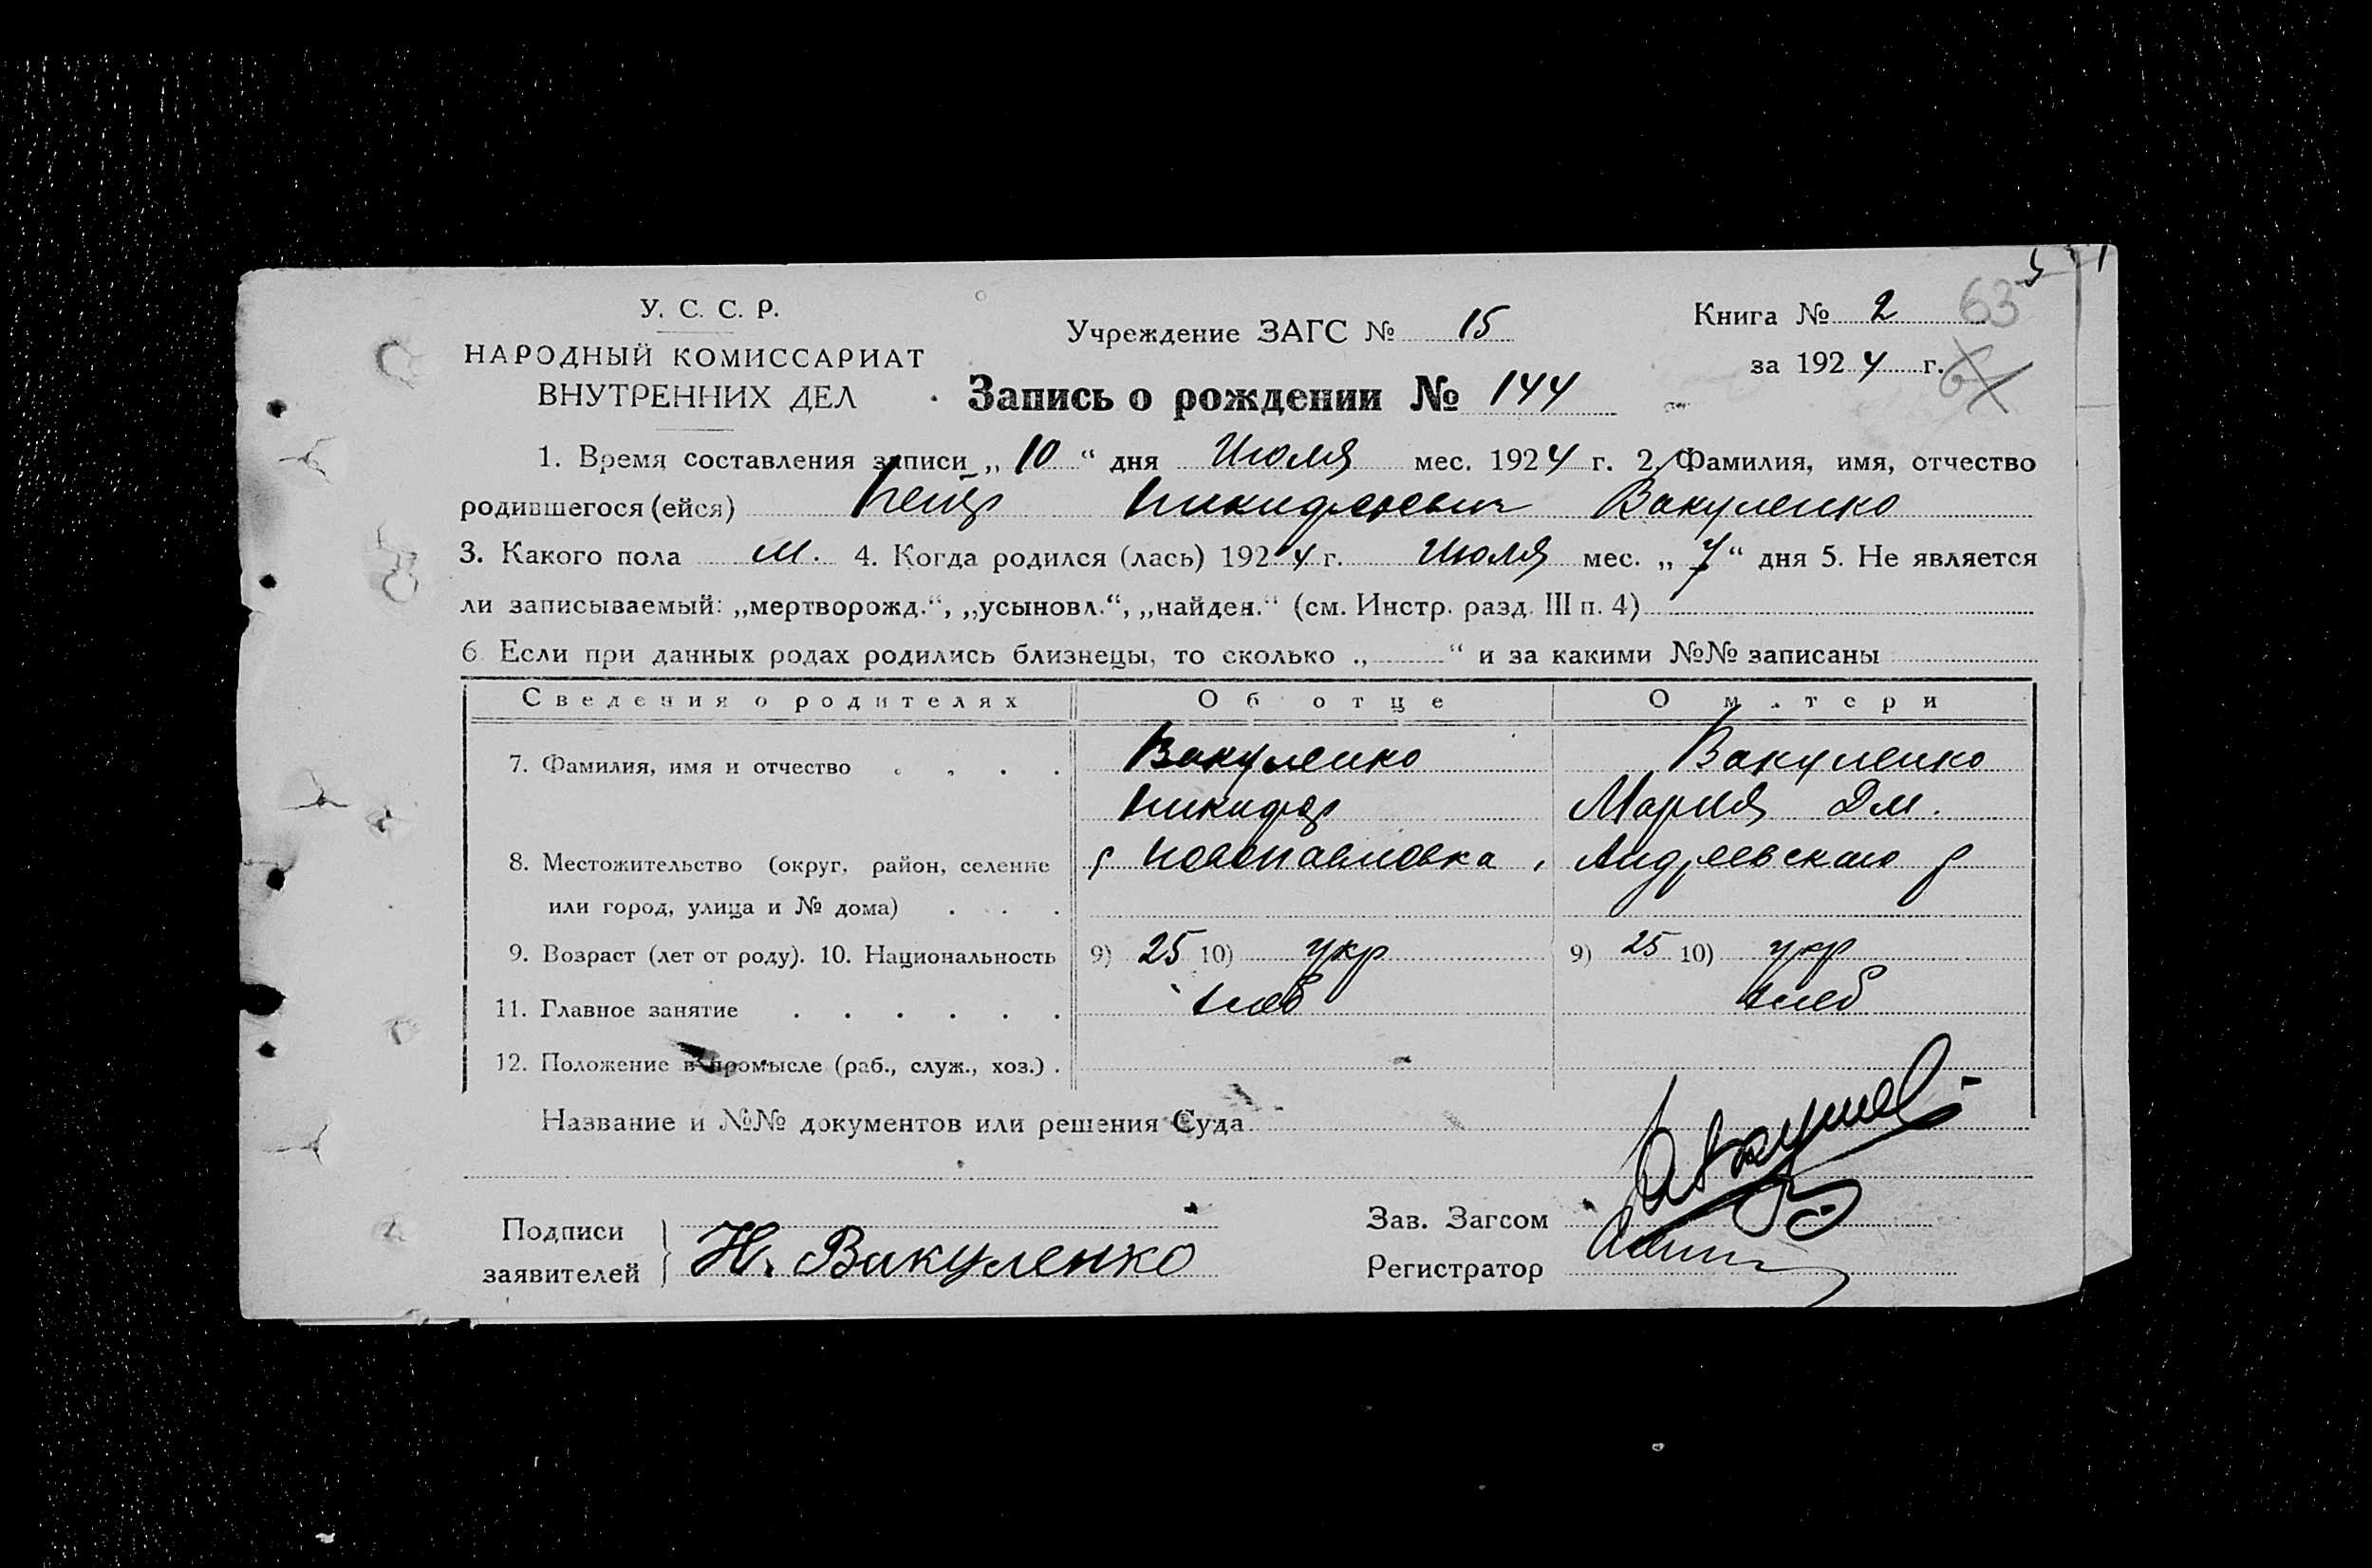 У. С. С. Р.
НАРОДНЫЙ КОМИССАРИАТ
ВНУТРЕННИХ ДЕЛ
Учреждение ЗАГС № 15
Книга № 2 63
за 1924 г.
Запись о рождении № 144
1. Время составления записи „ 10 “ дня Июля мес. 1924 г. 2. Фамилия, имя, отчество
родившегося (ейся) Петр Никифорович Вакуленко
3. Какого пола м. 4. Когда родился (лась) 1924 г. Июля мес. „ 7 “ дня 5. Не является
ли записываемый: „мертворожд.“, „усыновл.“, „найден.“ (см. Инстр. разд. III п. 4)
6. Если при данных родах родились близнецы, то сколько „ “ и за какими №№ записаны
Сведения о родителях Об отце О матери
7. Фамилия, имя и отчество . . . . Вакуленко Вакуленко
Никифор Мария Дм.
8. Местожительство (округ, район, селение Новопавловка, Андреевского р
или город, улица и № дома) . . .
9. Возраст (лет от роду). 10. Национальность 9) 25 10) укр 9) 25 10) укр
11. Главное занятие . . . . . . хлеб хлеб
12. Положение в промысле (раб., служ., хоз.) .
Название и №№ документов или решения Суда
Подписи
заявителей } Н. Вакуленко
Зав. Загсом
Регистратор